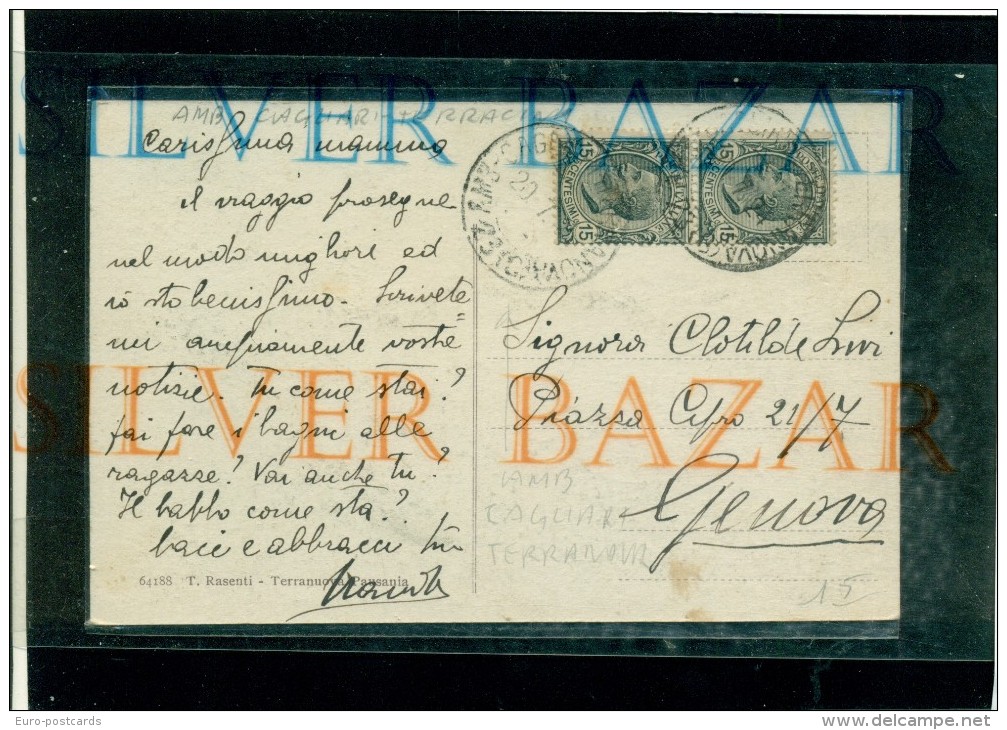 SILVER BAZAR
AMB CAGLIARI-TERRACIN
Carissima mamma
il viaggio prosegue
nel modo migliore ed
io sto benissimo. Scrivete=
mi ampiamente vostre
notizie. Tu come stai?
fai fare i bagni alle
ragazze? Vai anche tu?
Il babbo come sta?
baci e abbracci tuo
64188 T. Rasenti - Terranuova Pausania
15 CENTESIMI 15
15 CENTESIMI 15
Signora Clotilde Livi
Piazza Cipro 21/7
Genova
SILVER BAZAR
AMB
CAGLIARI
TERRANOVA
15
Euro-postcards
www.delcampe.net